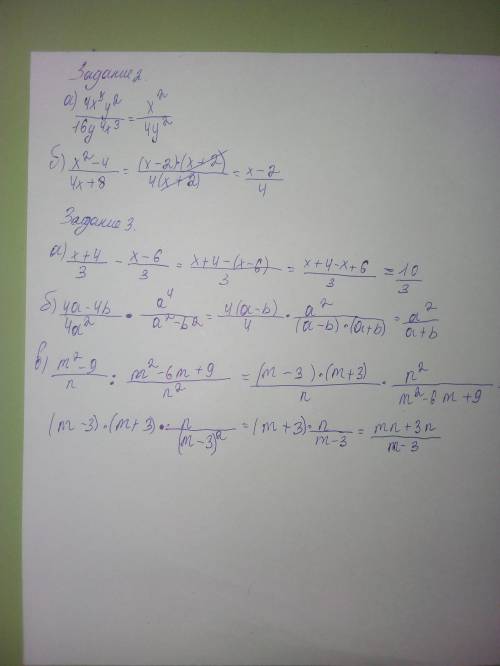 Задание 2.
а) 4x⁵y²/16y⁴x³ = x²/4y²
б) x²-4/4x+8 = (x-2)·(x+2)/4(x+2) = x-2/4
Задание 3.
а) x+4/3 - x-6/3 = x+4-(x-6)/3 = x+4-x+6/3 = 10/3
б) 4a-4b/4a² · a⁴/a²-b² = 4(a-b)/4 · a²/(a-b)·(a+b) = a²/a+b
в) m²-9/n : m²-6m+9/n² = (m-3)·(m+3)/n · n²/m²-6m+9 =
(m-3)·(m+3)·n/(m-3)² = (m+3)·n/m-3 = mn+3n/m-3